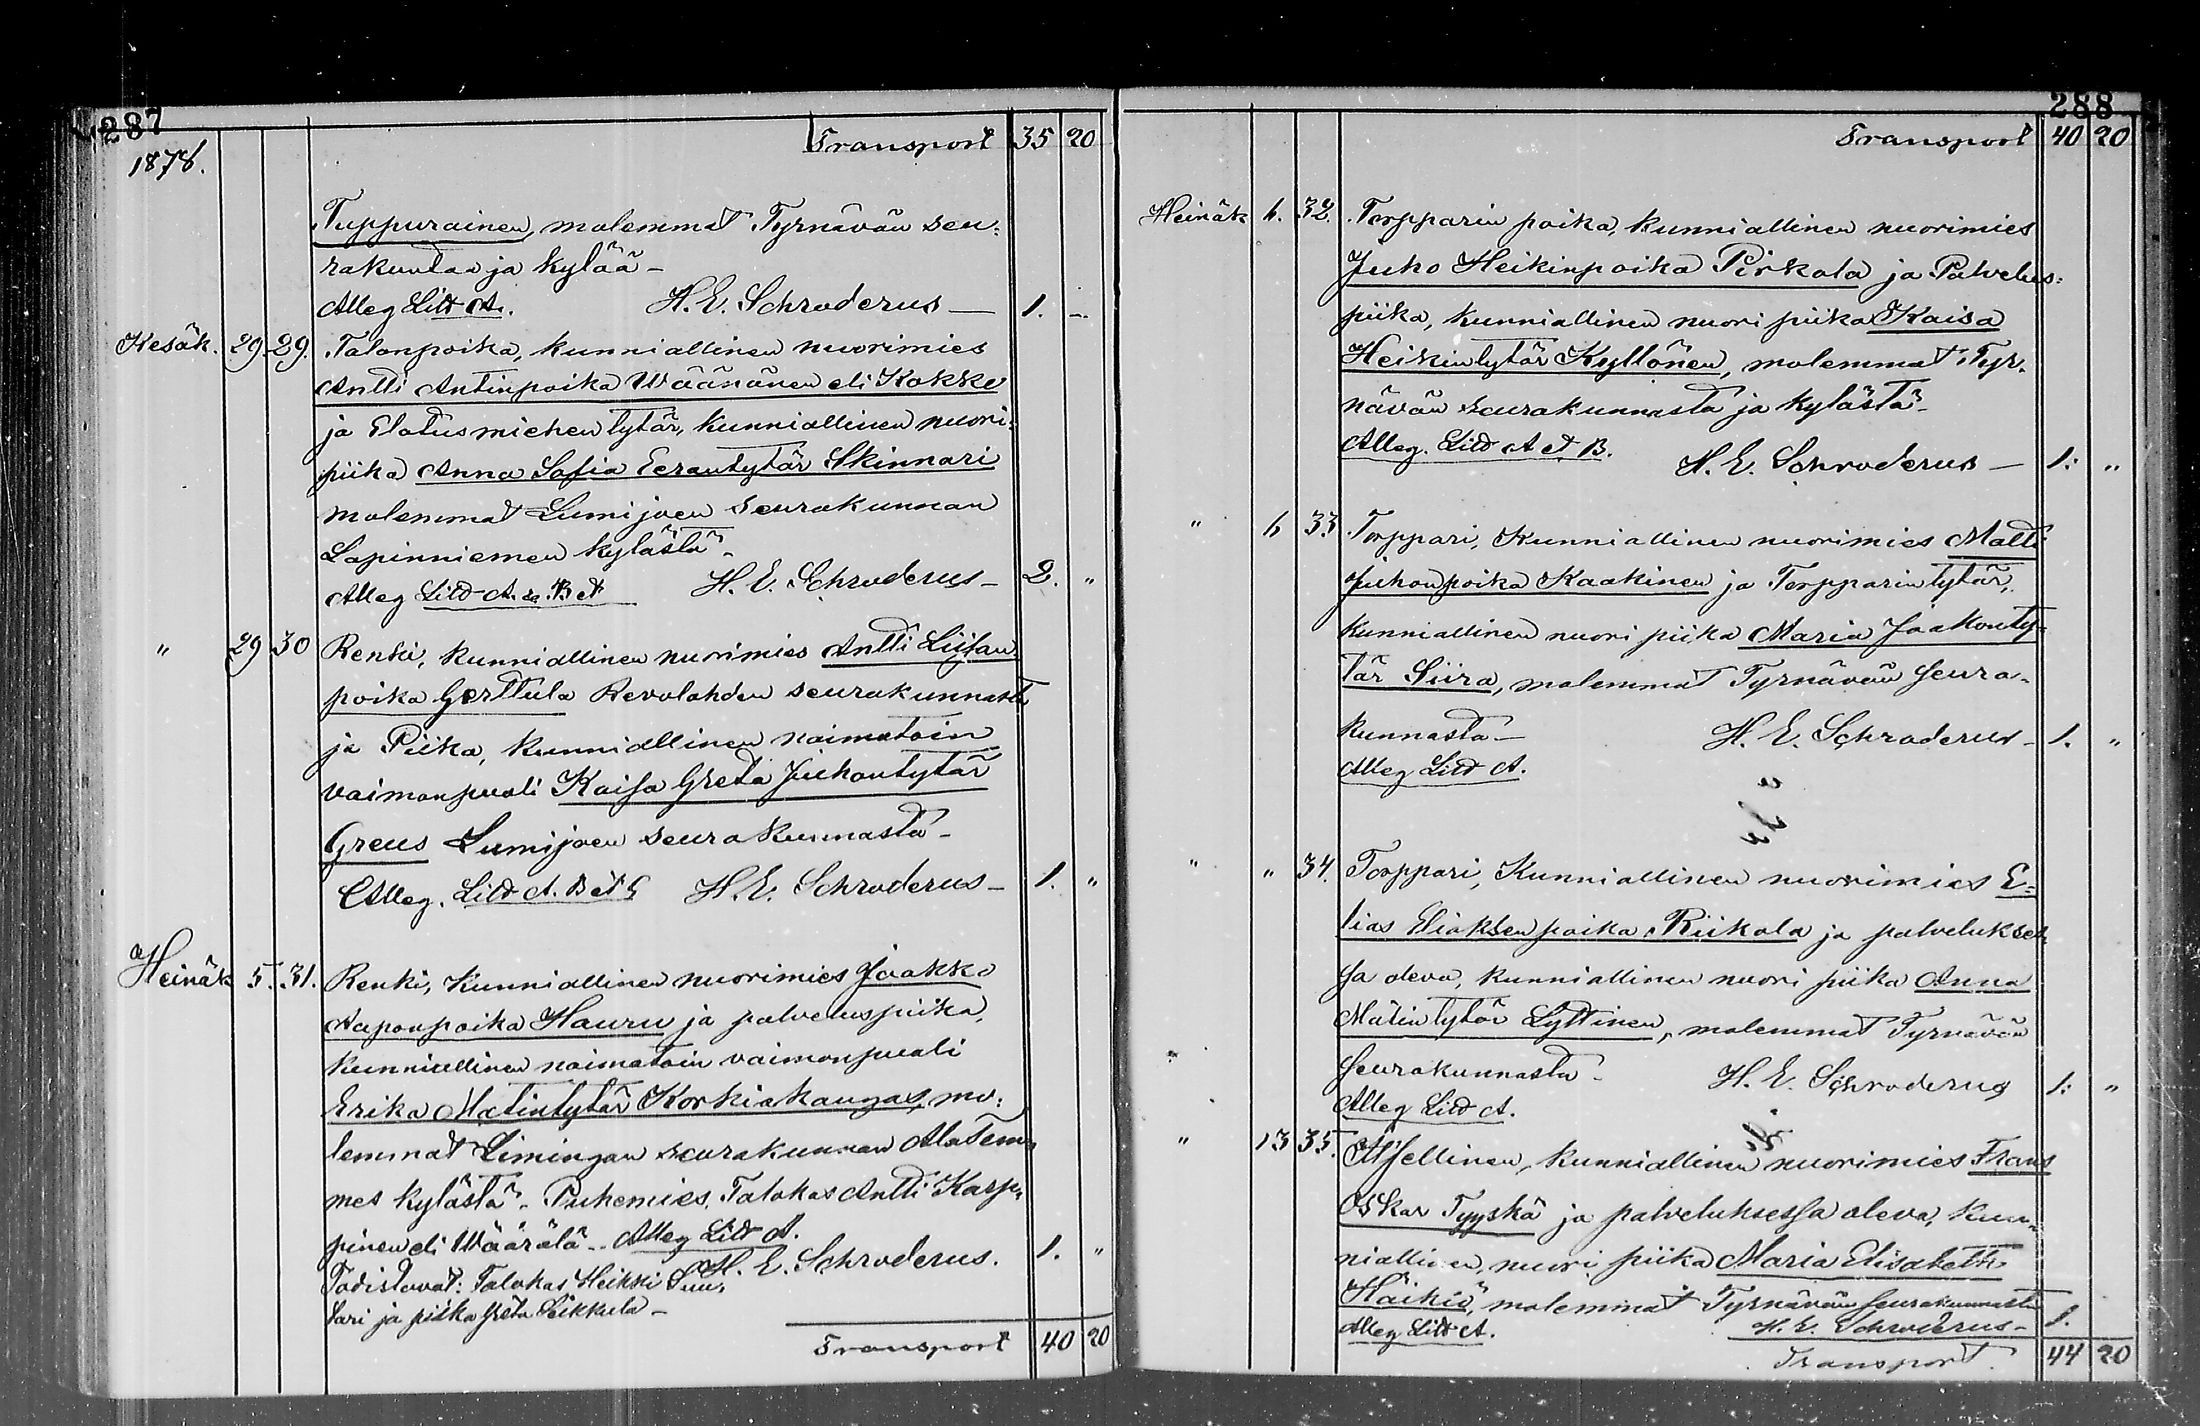 287
1878.
Transport 35 20
Tuppurainen, molemmat Tyrnävän seu-
rakuntaa ja kylää -
Alleg Litt A. H. E. Schroderus — 1. -
Kesäk. 29 29. Talonpoika, kunniallinen nuorimies
Antti Antinpoika Wäänänen eli Kokko
ja Elatusmiehen tytär, kunniallinen nuori-
piika Anna Sofia Eerantytär Skinnari
molemmat Lumijoen seurakunnan
Lapinniemen kylästä -
Alleg Litt A. B et H. E. Schroderus - 2. "
" 29 30 Renki, kunniallinen nuorimies Antti Liisan-
poika Gerttula Revolahden seurakunnasta
ja Piika, kunniallinen naimatoin
vaimonpuoli Kaisa Greta Juhontytär
Greus Lumijoen seurakunnasta -
Alleg. Litt A. B et C H. E. Schroderus - 1. "
Heinäk 5. 31. Renki, Kunniallinen nuorimies Jaakko
Aaponpoika Hauru ja palveluspiika,
kunniallinen naimatoin vaimonpuoli
Erika Matintytär Korkiakangas, mo-
lemmat Limingan seurakunnan Alatem-
mes kylästä - Puhemies, Talokas Antti Karp-
pinen eli Määrälä - Alleg Litt A.
H. E. Schroderus. 1. "
Todistavat: Talokas Heikki Suu-
tari ja piika Greta Leikkula -
Transport 40 20
288
Transport 40 20
Heinäk 6. 32. Torpparin poika, kunniallinen nuorimies
Juho Heikinpoika Pirkola ja Palvelus-
piika, kunniallinen nuori piika Kaisa
Heikintytär Kyllönen, molemmat Tyr-
nävän seurakunnasta ja kylästä -
Alleg. Litt A et B. H. E. Schroderus — 1. "
" 6 33. Torppari, Kunniallinen nuorimies Matti
Juhonpoika Kaakinen ja Torpparin tytär,
kunniallinen nuori piika Maria Jaakonty-
tär Siira, molemmat Tyrnävän seura-
kunnasta - H. E. Schroderus - 1. "
Alleg Litt A.
" " 34. Torppari, Kunniallinen nuorimies E-
lias Eliaksen poika Riikola ja palvelukses-
sa oleva, kunniallinen nuori piika Anna
Matintytär Lyttinen, molemmat Tyrnävän
seurakunnasta - H. E. Schroderus 1. "
Alleg Litt A.
" 13 35. Itsellinen, kunniallinen nuorimies Frans
Oskar Tyyskä ja palveluksessa oleva, kun-
niallinen, nuori piika Maria Elisabeth
Häikiö, molemmat Tyrnävän seurakunnasta
Alleg Litt A. H. E. Schroderus - 1.
Transport 44 20